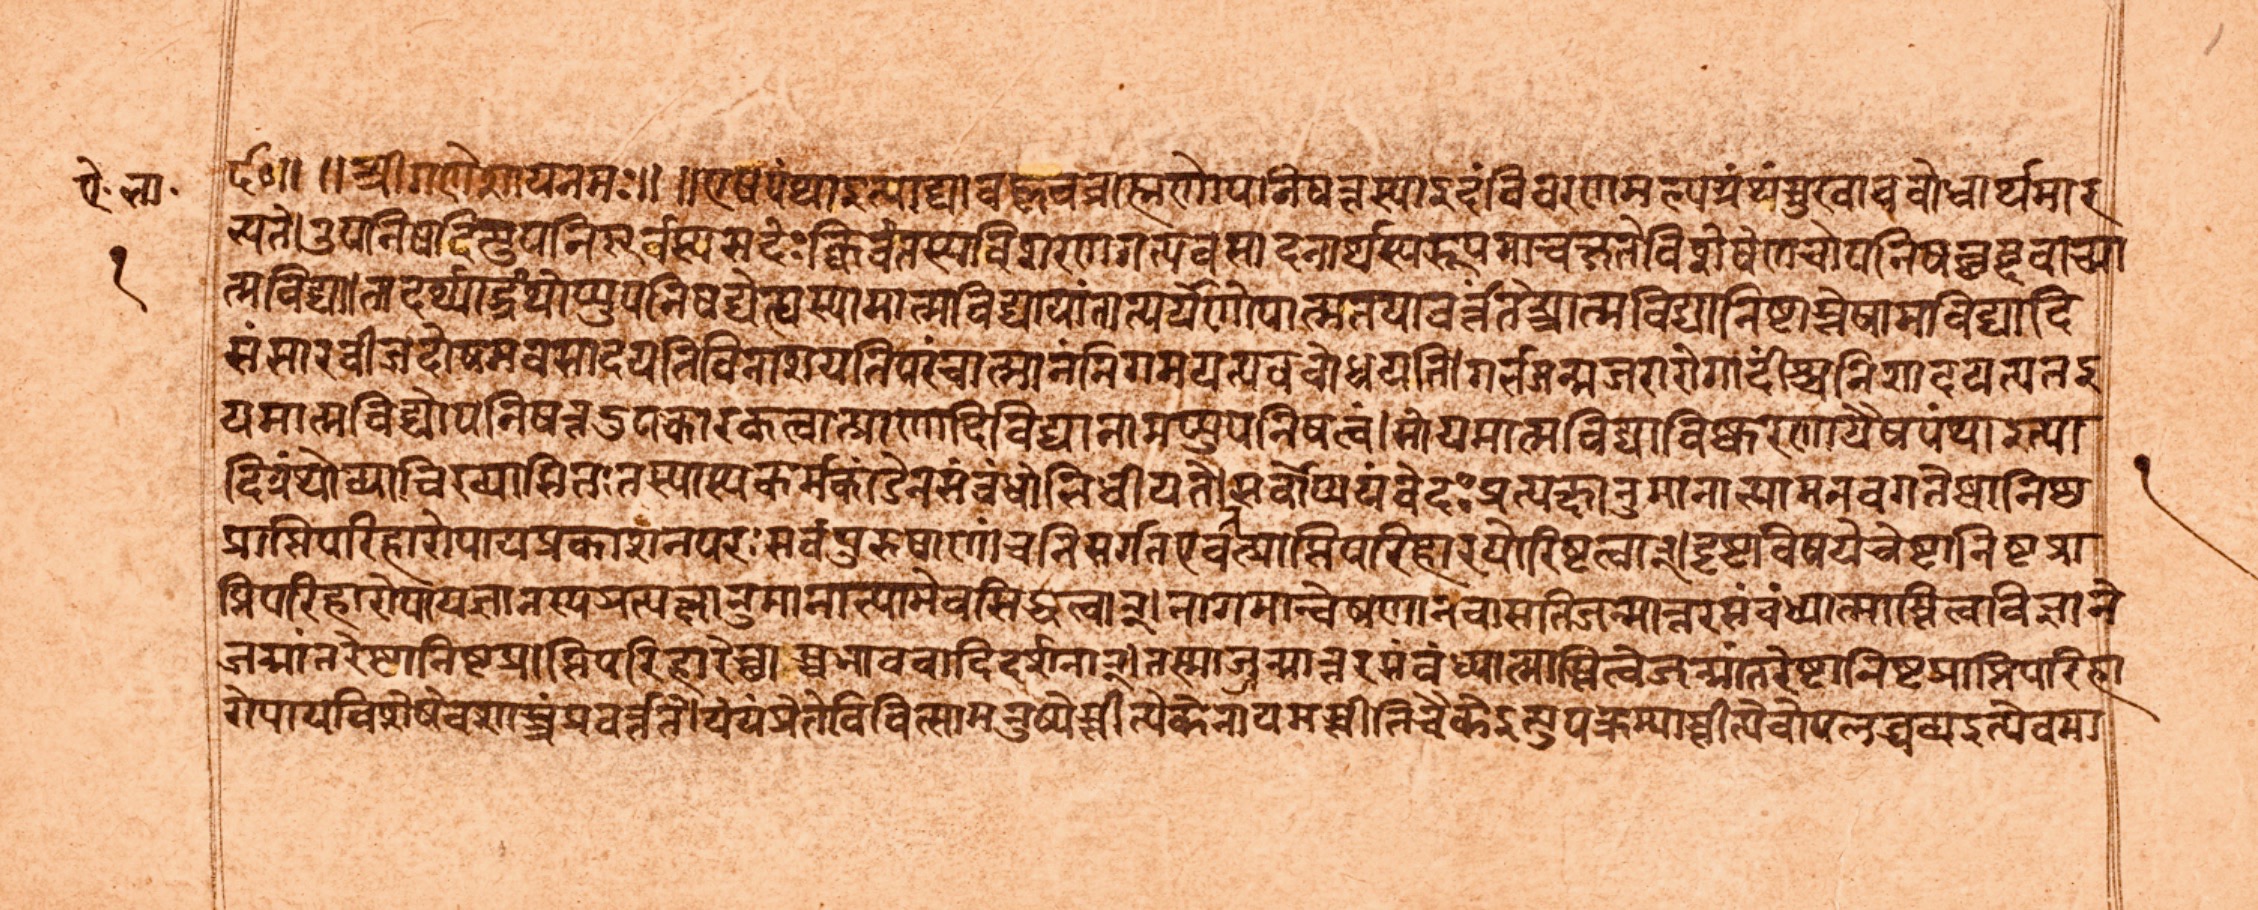 ऐ. ला.
र्द०॥ ॥श्रीगणेशायनमः॥ ॥एषपंथाइत्याद्याबह्वृचब्राह्मणोपनिषत्तस्याइदंविवरणमल्पग्रंथंसुखावबोधार्थमार
भ्यते।उपनिषदितिस्यविशरणगत्यवसादनार्थस्यरूपमाचक्षतेविशेषेणचोपनिषच्छब्दवाच्या
१
त्मविद्या।तादर्थ्याद्ग्रंथोप्युपनिषद्येत्यस्यामात्मविद्यायांतात्पर्येणोपात्मतयावर्त्ततेआत्मविद्यानिष्टास्तेषामाविद्यादि
संसारबीजदोषमवसादयतिविनाशयतिपरंचात्मानंनिगमयत्यवबोधयति।गर्भजन्मजरारोगादींश्चनिशादयत्यतइ
यमात्मविद्योपनिषत्तदुपकारकत्वात्प्राणादिविद्यानामप्युपनिषत्वं।सेयमात्मविद्याविष्करणायैषपंथाइत्या
दिग्रंथोव्याचिख्यासितःतस्यास्यकर्मकांडेनसंबंधोभिधीयते।सर्वोप्ययंवेदःप्रत्यक्षानुमानाभ्यामनवगतेष्टानिष्ट
प्राप्तिपरिहारोपायप्रकाशनपरःसर्वपुरुषाणांचनिसर्गतएवतत्प्राप्तिपरिहारयोरिष्टत्वात्।दृष्टविषयेचेष्टानिष्टप्रा
प्तिपरिहारोपायज्ञानस्यप्रत्यक्षानुमानाभ्यामेवसिद्धत्वात्।नागमान्वेषणानचासतिजन्मान्तरसंबंध्यात्मास्तित्वविज्ञाने
जन्मांतरेष्टानिष्टप्राप्तिपरिहारेच्छास्वभाववादिदर्शनात्।तस्माज्जन्मान्तरसंबंध्यात्मास्तित्वेजन्मांतरेष्टानिष्टप्राप्तिपरिहा
रोपायविशेषेचशास्त्रंप्रवर्त्तते।येयंप्रेतेविचिकित्सामनुष्येस्तीत्येकेनायमस्तीतिचैकेइत्युपक्रम्यास्तीत्येवोपलब्धव्यइत्येवमा
१